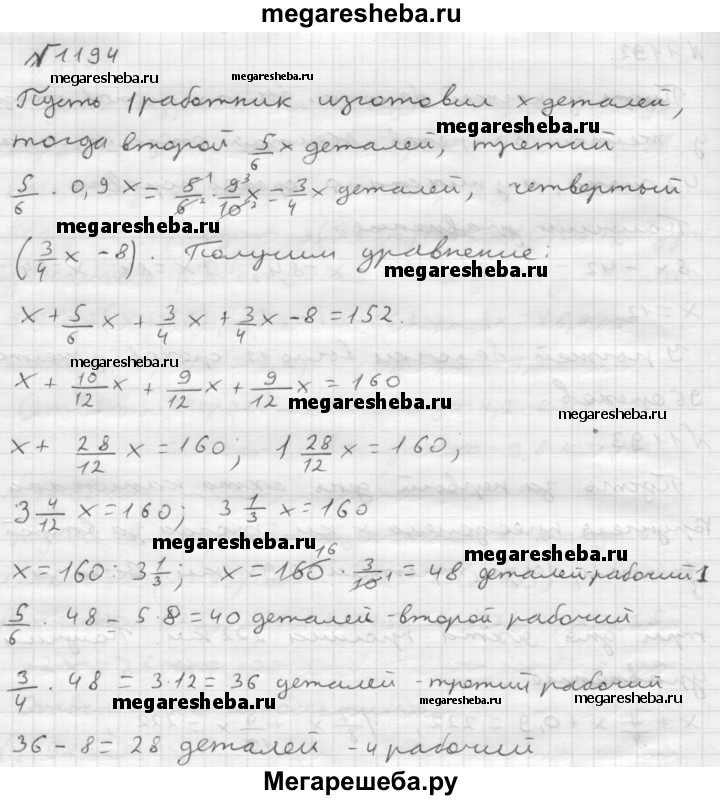 megaresheba.ru
№1194
megaresheba.ru megaresheba.ru
Пусть 1 работник изготовил x деталей,
megaresheba.ru
тогда второй 5/6 x деталей, третий
5/6 · 0,9x = 5¹/6₂ · 9³/10₂ x = 3/4 x деталей, четвертый
megaresheba.ru
(3/4 x - 8). Получим уравнение:
megaresheba.ru
x + 5/6 x + 3/4 x + 3/4 x - 8 = 152.
megaresheba.ru
x + 10/12 x + 9/12 x + 9/12 x = 160
megaresheba.ru megaresheba.ru
x + 28/12 x = 160; 1 28/12 x = 160;
3 4/12 x = 160; 3 1/3 x = 160
megaresheba.ru megaresheba.ru
x = 160 : 3 1/3; x = 160¹⁶ · 3/10₁ = 48 деталей-рабочий 1
5/6 · 48 - 5·8 = 40 деталей - второй рабочий
3/4 · 48 = 3·12 = 36 деталей - третий рабочий
megaresheba.ru megaresheba.ru megaresheba.ru
36 - 8 = 28 деталей - 4 рабочий
Мегарешеба.ру